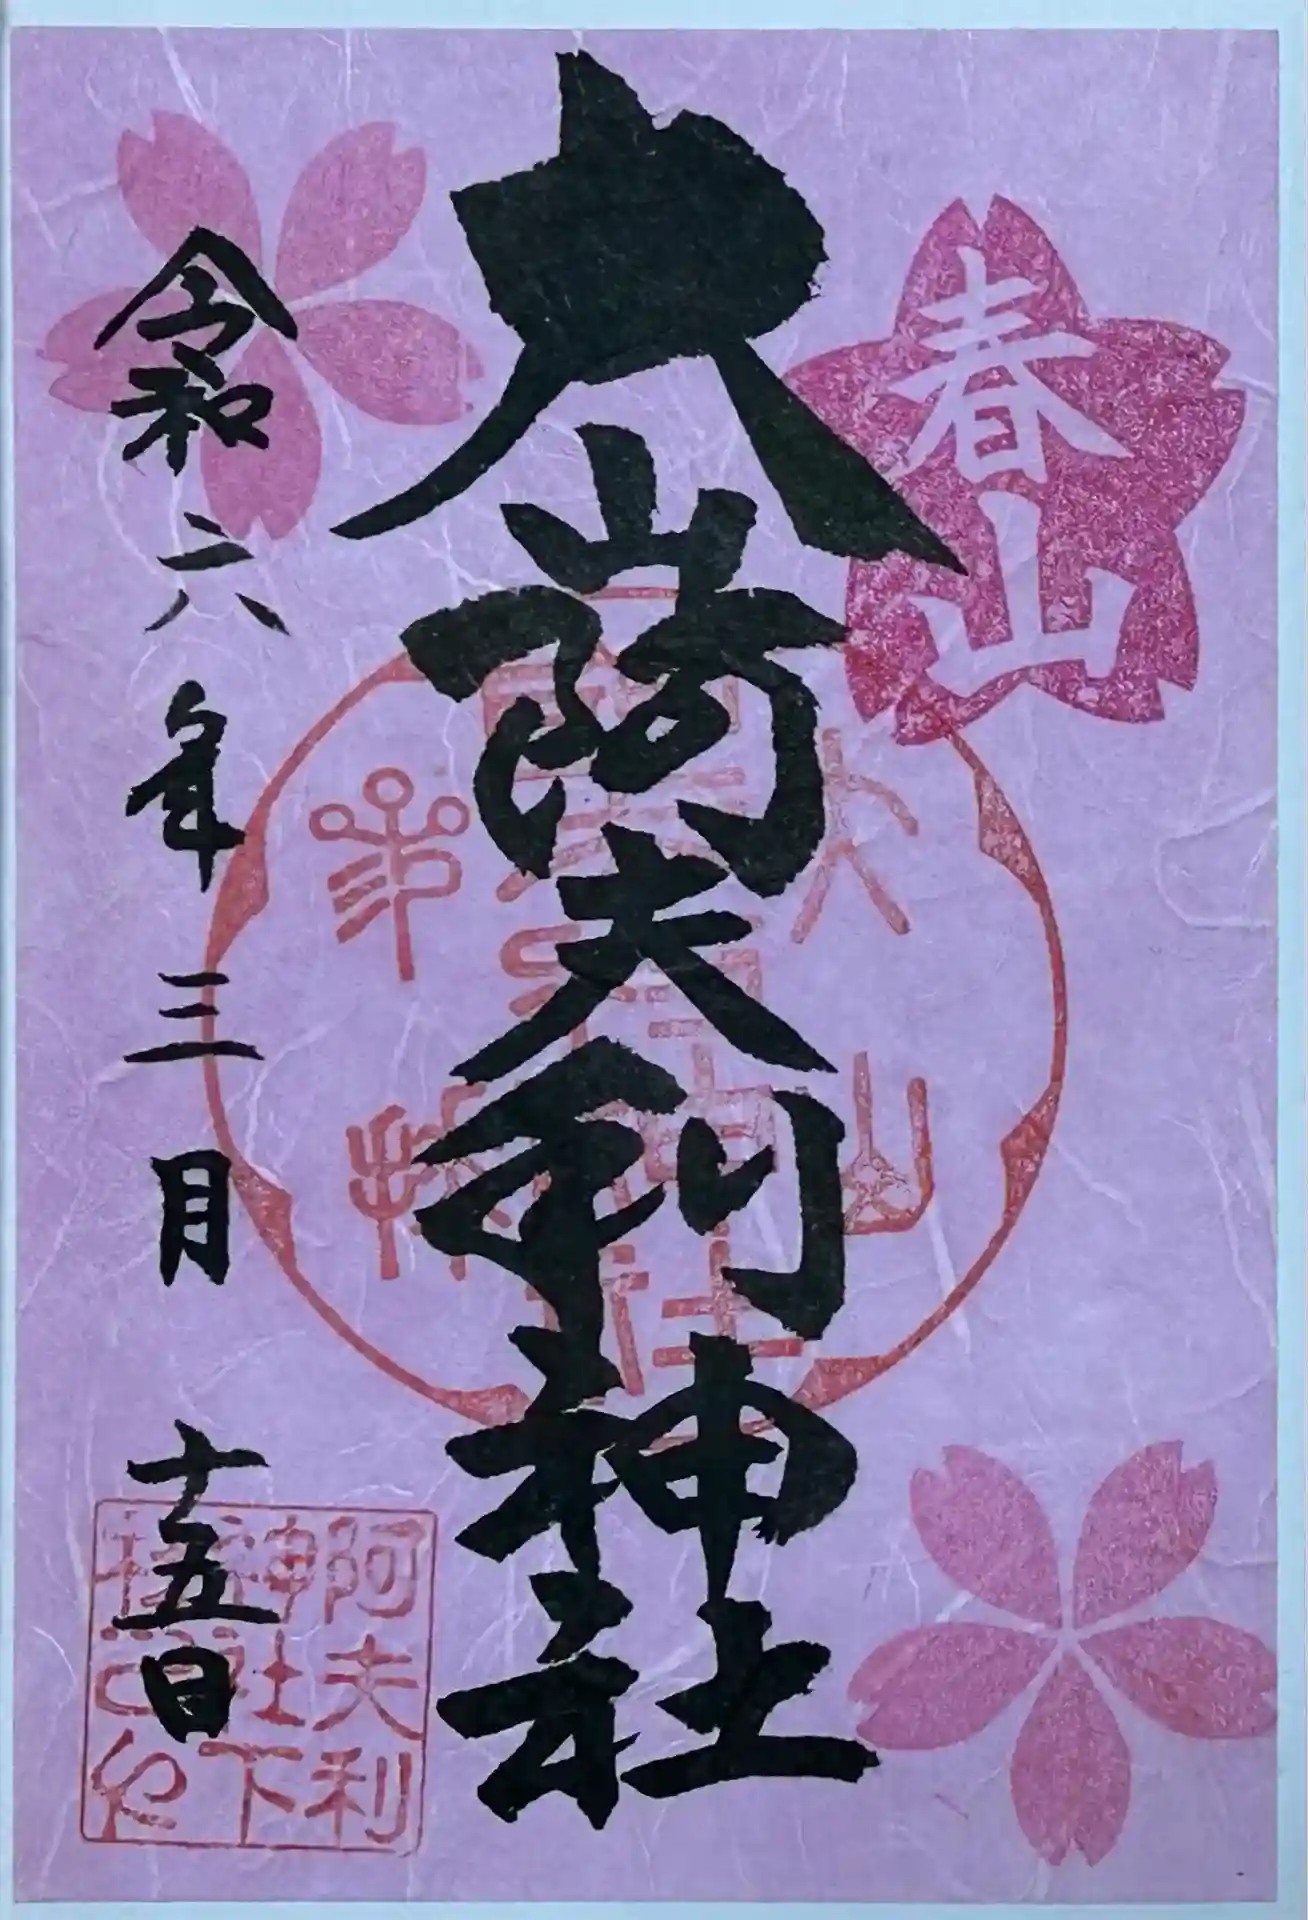 春山
大山阿夫利神社
令和六年三月十五日
阿夫利
神社下
社